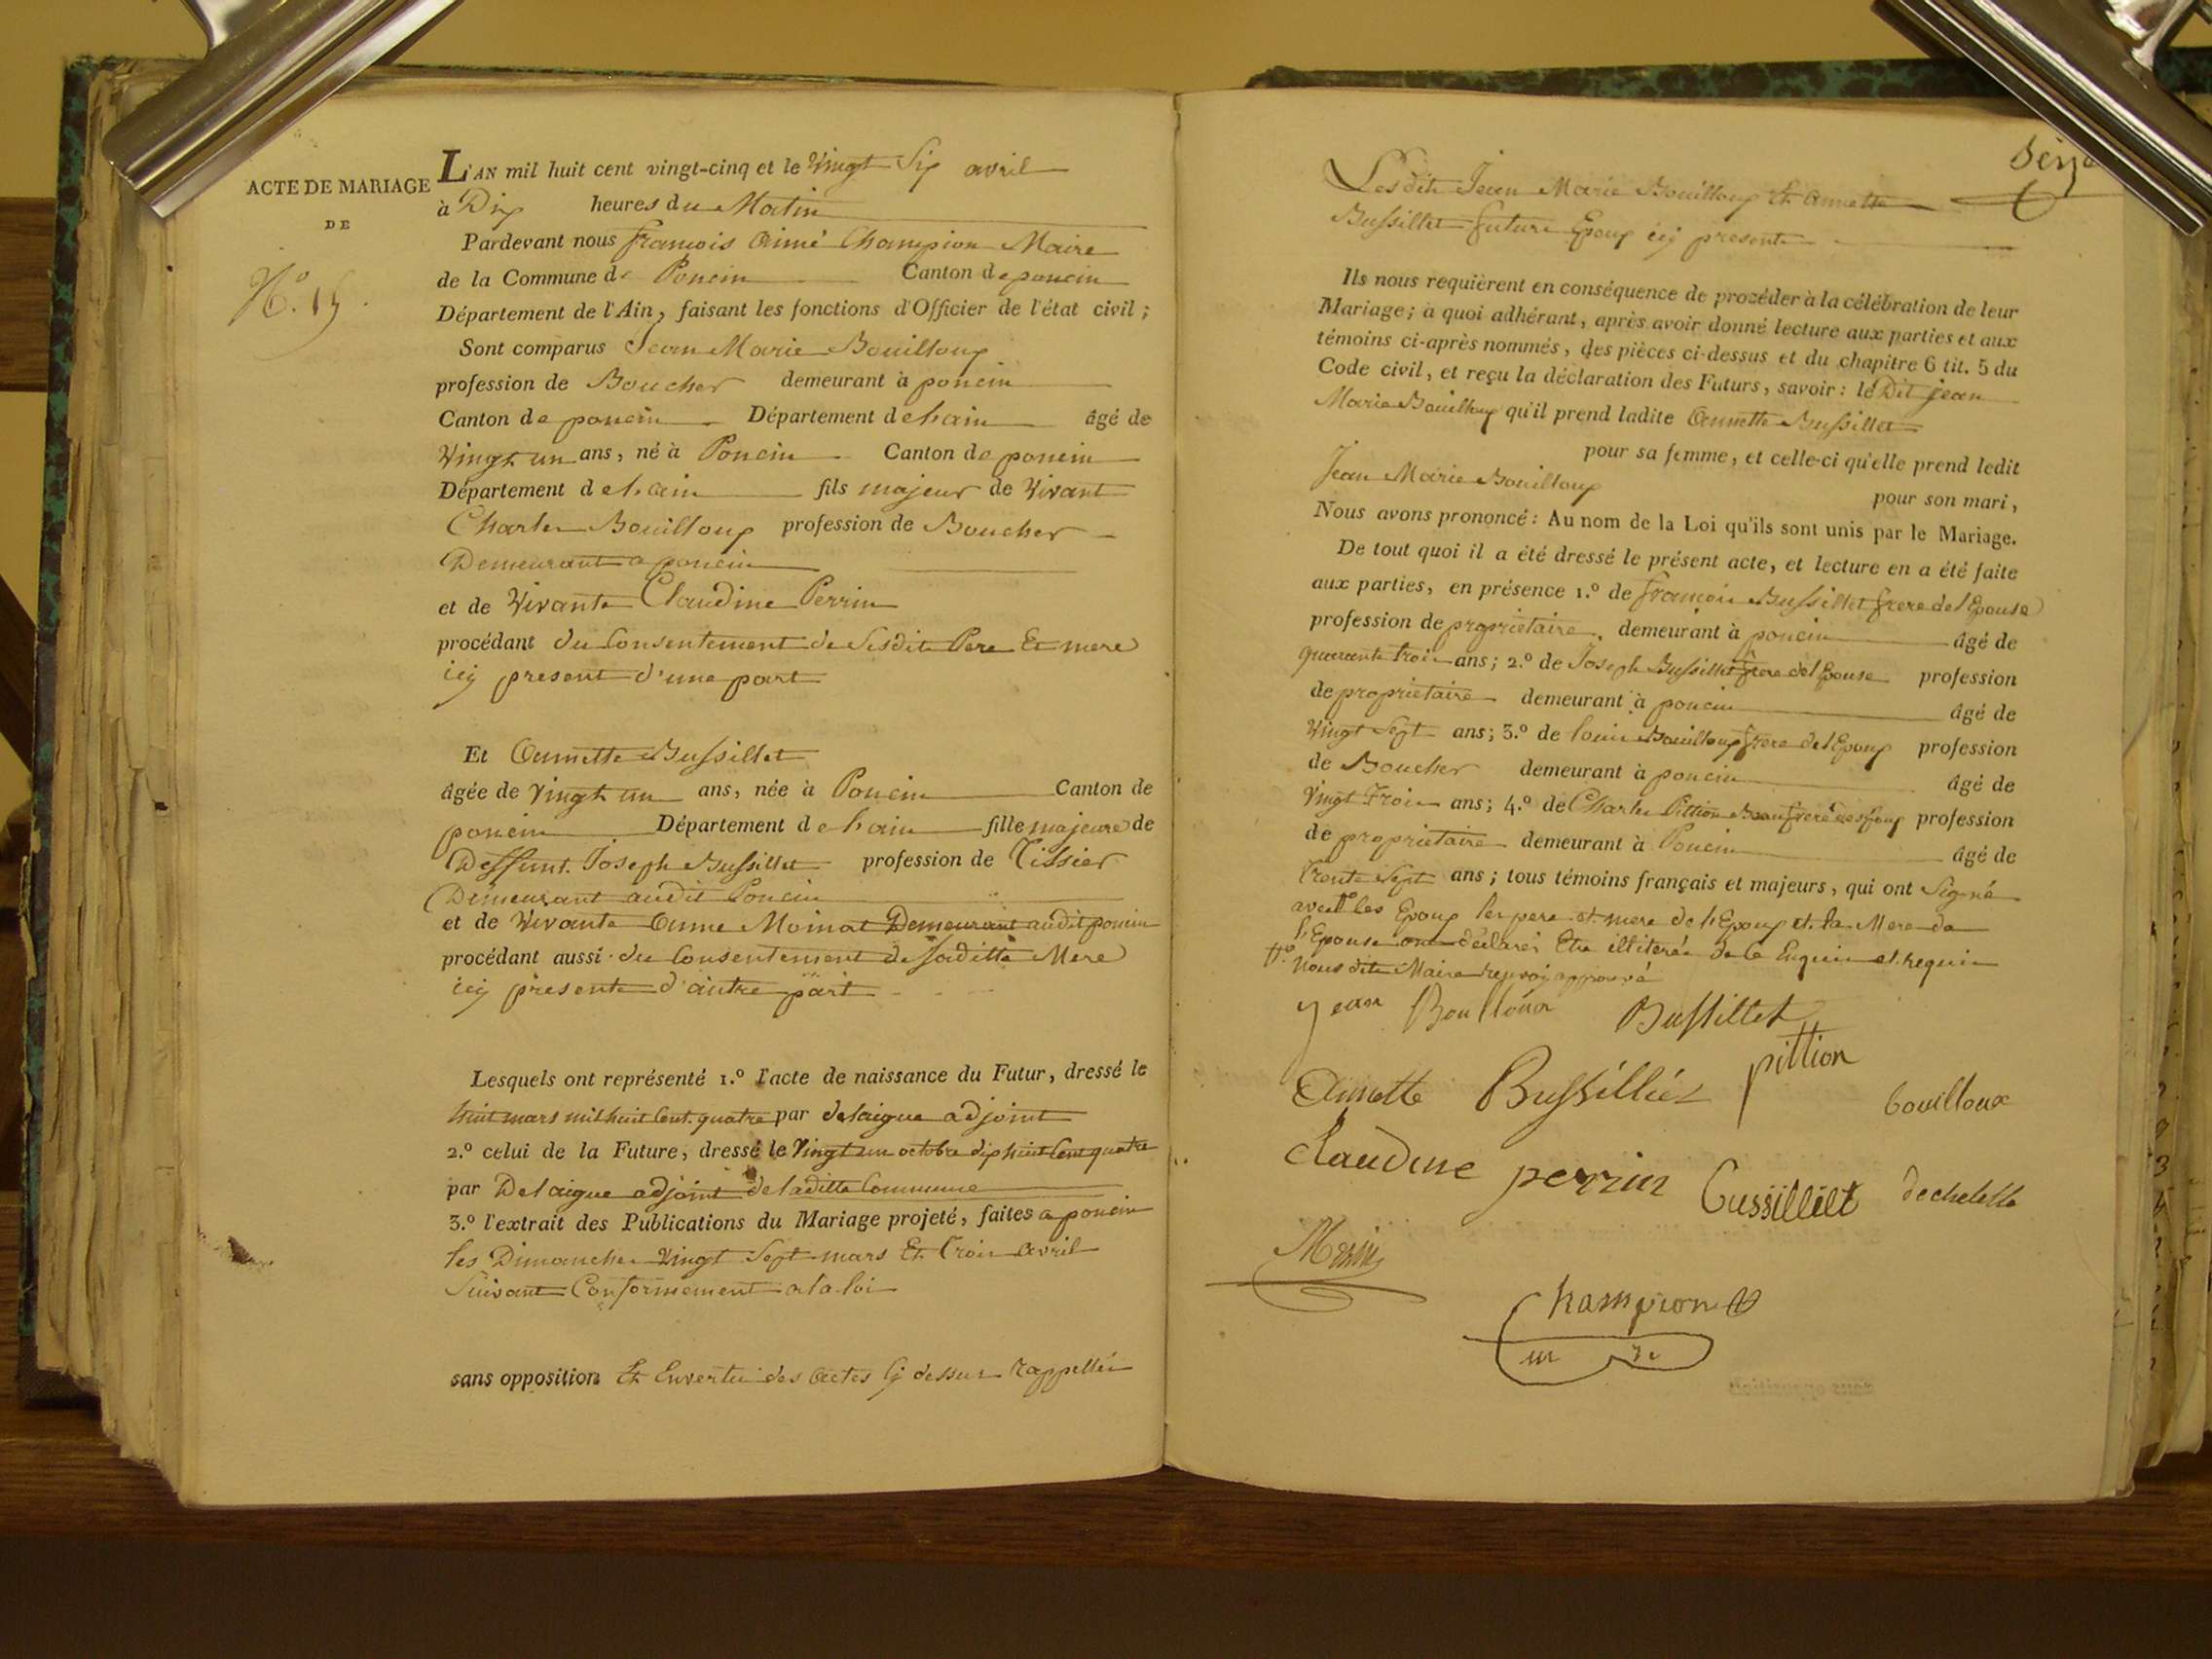 ACTE DE MARIAGE
DE
N.º 15.
L'AN mil huit cent vingt-cinq et le Vingt Six avril
à Dix heures du Matin
Pardevant nous francois Aimé Champion Maire
de la Commune de Poncin Canton de poncin
Département de l'Ain, faisant les fonctions d'Officier de l'état civil ;
Sont comparus Jean Marie Bouilloux
profession de Boucher demeurant à poncin
Canton de poncin Département de lain âgé de
Vingt un ans, né à Poncin Canton de poncin
Département de lain fils majeur de Vivant
Charles Bouilloux profession de Boucher
Demeurant a poncin
et de Vivante Claudine Perrin
procédant du Consentement de Sesdits Pere Et mere
icy present d'une part
Et Annette Bussillet
âgée de Vingt un ans, née à Poncin Canton de
poncin Département de lain fille majeure de
Deffunt Joseph Bussillet profession de Tissier
Demeurant audit Poncin
et de Vivante Anne Moinat Demeurant audit poncin
procédant aussi du Consentement de saditte Mere
icy presente d'autre part
Lesquels ont représenté 1.º l'acte de naissance du Futur, dressé le
huit mars mil huit Cent quatre par delaigue adjoint
2.º celui de la Future, dressé le Vingt un octobre dix huit Cent quatre
par Delaigue adjoint de laditte Commune
3.º l'extrait des Publications du Mariage projeté, faites a poncin
les Dimanches Vingt Sept mars Et Trois avril
Suivant Conformement a la loi
sans opposition Et Envertu des Actes Cy dessus Rappellés
Lesdits Jean Marie Bouilloux Et Annette
Bussillet future Epoux icy presents
Ils nous requièrent en conséquence de procéder à la célébration de leur
Mariage; à quoi adhérant, après avoir donné lecture aux parties et aux
témoins ci-après nommés, des pièces ci-dessus et du chapitre 6 tit. 5 du
Code civil, et reçu la déclaration des Futurs, savoir : le Dit jean
Marie Bouilloux qu'il prend ladite Annette Bussillet
pour sa femme, et celle-ci qu'elle prend ledit
Jean Marie Bouilloux pour son mari,
Nous avons prononcé : Au nom de la Loi qu'ils sont unis par le Mariage.
De tout quoi il a été dressé le présent acte, et lecture en a été faite
aux parties, en présence 1.º de francois Bussillet frere de l'Epouse
profession de proprietaire demeurant à poncin âgé de
quarante trois ans ; 2.º de Joseph Bussillet frere de l'Epouse profession
de proprietaire demeurant à poncin âgé de
Vingt Sept ans ; 3.º de louis Bouilloux frere de l'Epoux profession
de Boucher demeurant à poncin âgé de
Vingt Trois ans ; 4.º de Charles Pittion Beaufrere de l'Epoux profession
de proprietaire demeurant à Poncin âgé de
Trente Sept ans ; tous témoins français et majeurs, qui ont Signé
avec les Epoux les pere et mere de l'Epoux et la Mere de
l'Epouse déclaré Etre illiterée de ce Enquis et requis
Nous dits Maire renvoi approuvé
jean Bouilloux Bussillet
Annette Bussilliet pittion
bouilloux
Claudine perrin Bussillilt dechelette
Champion